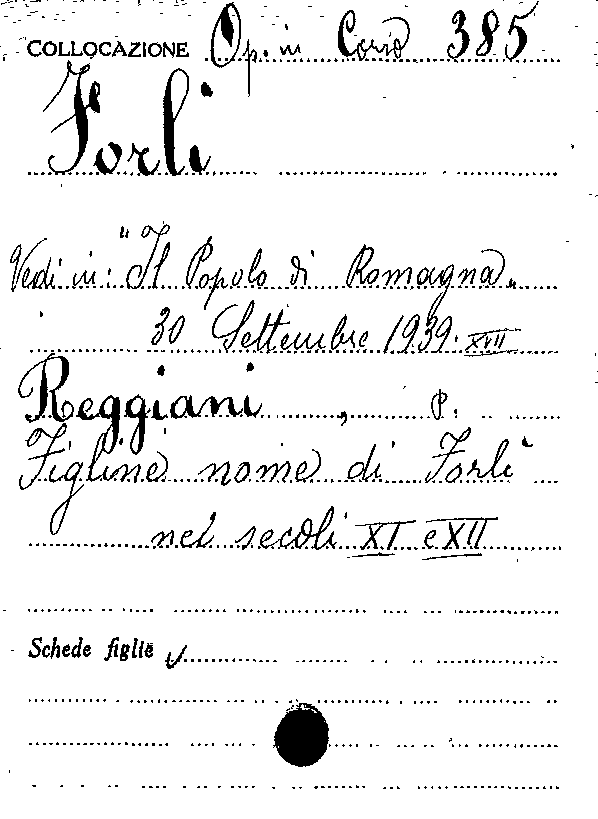 COLLOCAZIONE Op. in Corso 385
Forlì
Vedi in: "Il Popolo di Romagna„
30 Settembre 1939. XVII
Reggiani, P.
Figline nome di Forlì
nei secoli XI e XII
Schede figlie